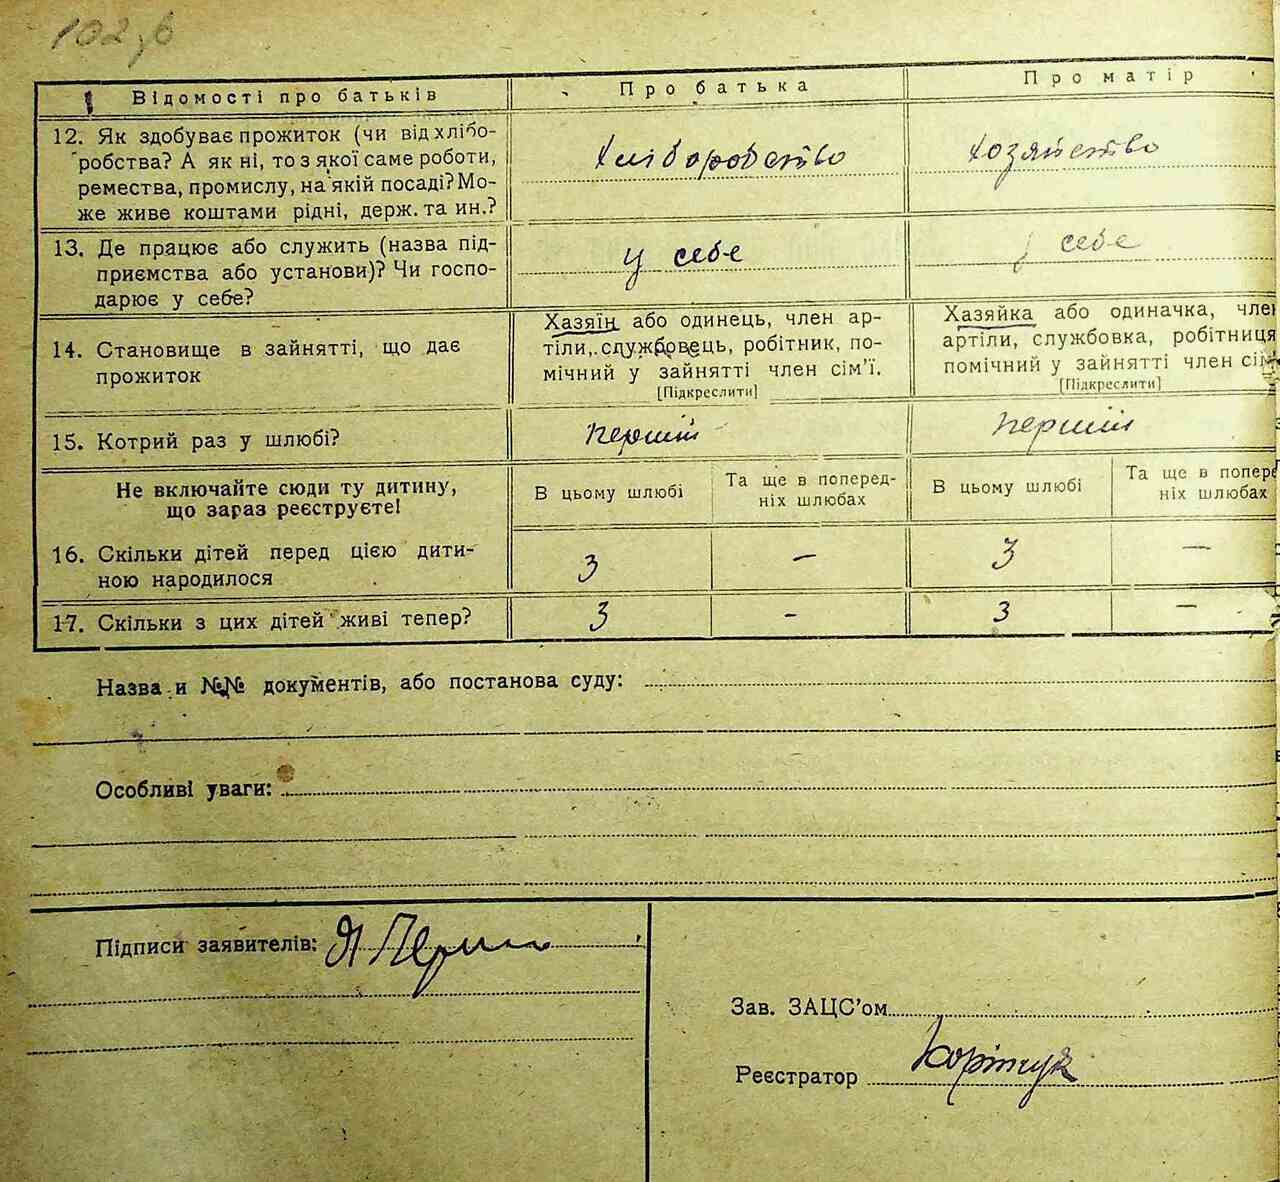 102 зв
Відомості про батьків
Про батька
Про матір
12. Як здобуває прожиток (чи від хлібо-
робства? А як ні, то з якої саме роботи,
ремества, промислу, на якій посаді? Мо-
же живе коштами рідні, держ. та ин.?
хліборобство
хозяйство
13. Де працює або служить (назва під-
приємства або установи)? Чи госпо-
дарює у себе?
у себе
у себе
14. Становище в зайнятті, що дає
прожиток
Хазяїн або одинець, член ар-
тіли, службовець, робітник, по-
мічний у зайнятті член сім'ї.
[Підкреслити]
Хазяйка або одиначка, член
артіли, службовка, робітниця
помічний у зайнятті член сім
[Підкреслити]
15. Котрий раз у шлюбі?
перший
перший
Не включайте сюди ту дитину,
що зараз реєструєте!
В цьому шлюбі
Та ще в поперед-
ніх шлюбах
В цьому шлюбі
Та ще в попере
ніх шлюбах
16. Скільки дітей перед цією дити-
ною народилося
3
–
3
–
17. Скільки з цих дітей живі тепер?
3
-
3
–
Назва и №№ документів, або постанова суду:
Особливі уваги:
Підписи заявителів:
Зав. ЗАЦС'ом
Реєстратор